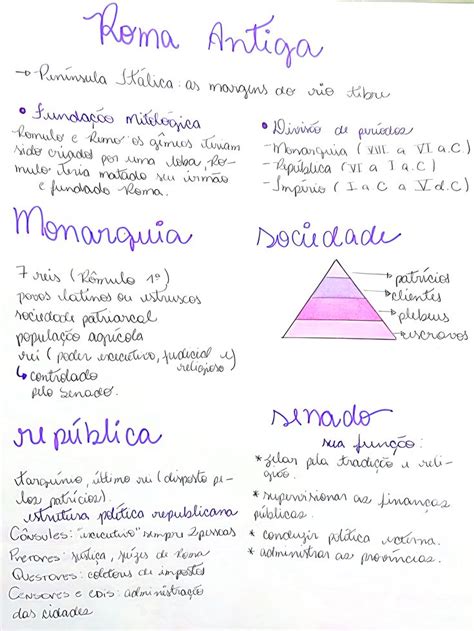 Roma Antiga
→ Península Itálica: as margens do rio tibre
• Fundação mitológica
Romulo e Remo os gêmeos teriam
sido criados por uma loba, Rô-
mulo teria matado seu irmão
e fundado Roma.
• Divisão de períodos
- Monarquia (VIII a VI a.C)
- República (VI a I a.C)
- Império (I a.C a V d.C)
Monarquia
7 reis (Rômulo 1º)
povos latinos ou etruscos
sociedade patriarcal
população agrícola
rei (poder executivo, judicial e
religioso)
↳ controlado
pelo Senado.
sociedade
patrícios
clientes
plebeus
escravos
república
tarquínio, último rei (disposto pe-
los patrícios).
estrutura política republicana
Cônsules: "executivo" sempre 2 pessoas
Pretores: justiça, juízes de Roma
Questores: coletores de impostos
Censores e edis: administração
das cidades
senado
sua função:
* zelar pela tradição e reli-
gião.
* supervisionar as finanças
públicas.
* conduzir política externa.
* administrar as províncias.